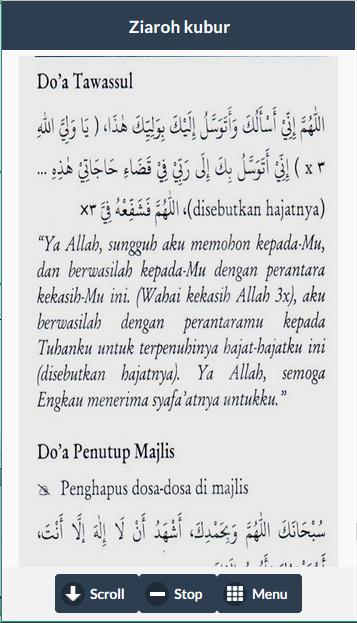 Ziaroh kubur
Do'a Tawassul
اللّٰهُمَّ إِنِّيْ أَسْأَلُكَ وَأَتَوَسَّلُ إِلَيْكَ بِوَلِيِّكَ هٰذَا، ( يَا وَلِيَّ اللهِ
x ٣ ) إِنِّيْ أَتَوَسَّلُ بِكَ إِلَى رَبِّيْ فِيْ قَضَاءِ حَاجَاتِيْ هٰذِهِ ...
(disebutkan hajatnya)، اَللّٰهُمَّ فَشَفِّعْهُ فِيَّ ×٣
“Ya Allah, sungguh aku memohon kepada-Mu,
dan berwasilah kepada-Mu dengan perantara
kekasih-Mu ini. (Wahai kekasih Allah 3x), aku
berwasilah dengan perantaramu kepada
Tuhanku untuk terpenuhinya hajat-hajatku ini
(disebutkan hajatnya). Ya Allah, semoga
Engkau menerima syafa'atnya untukku.”
Do'a Penutup Majlis
Penghapus dosa-dosa di majlis
سُبْحَانَكَ اللّٰهُمَّ وَبِحَمْدِكَ، أَشْهَدُ أَنْ لَا إِلٰهَ إِلَّا أَنْتَ،
Scroll Stop Menu